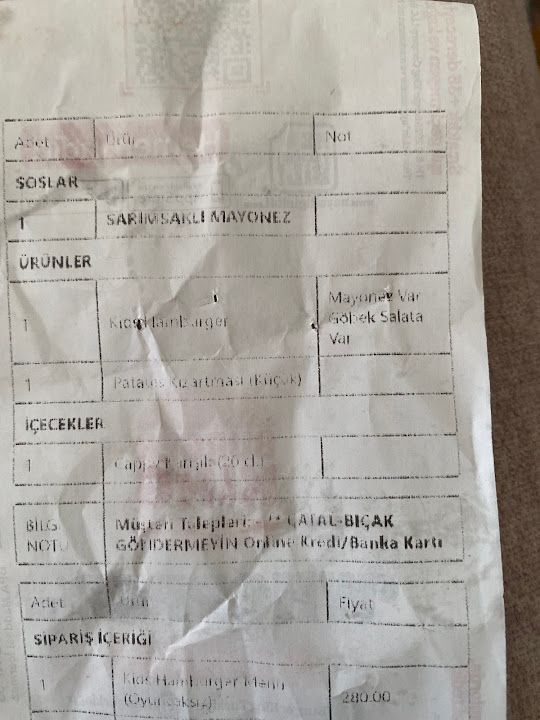 Adet Ürün Not
SOSLAR
1 SARIMSAKLI MAYONEZ
ÜRÜNLER
1 Kids Hamburger Mayonez Var
Göbek Salata
Var
1 Patates Kızartması (Küçük)
İÇECEKLER
1 Cappy Karışık (20 cl.)
BİLGİ Müşteri Talepleri: - ** ÇATAL-BIÇAK
NOTU GÖNDERMEYİN Online Kredi/Banka Kartı
Adet Ürün Fiyat
SİPARİŞ İÇERİĞİ
1 Kids Hamburger Menü 280.00
(Oyuncaksız)